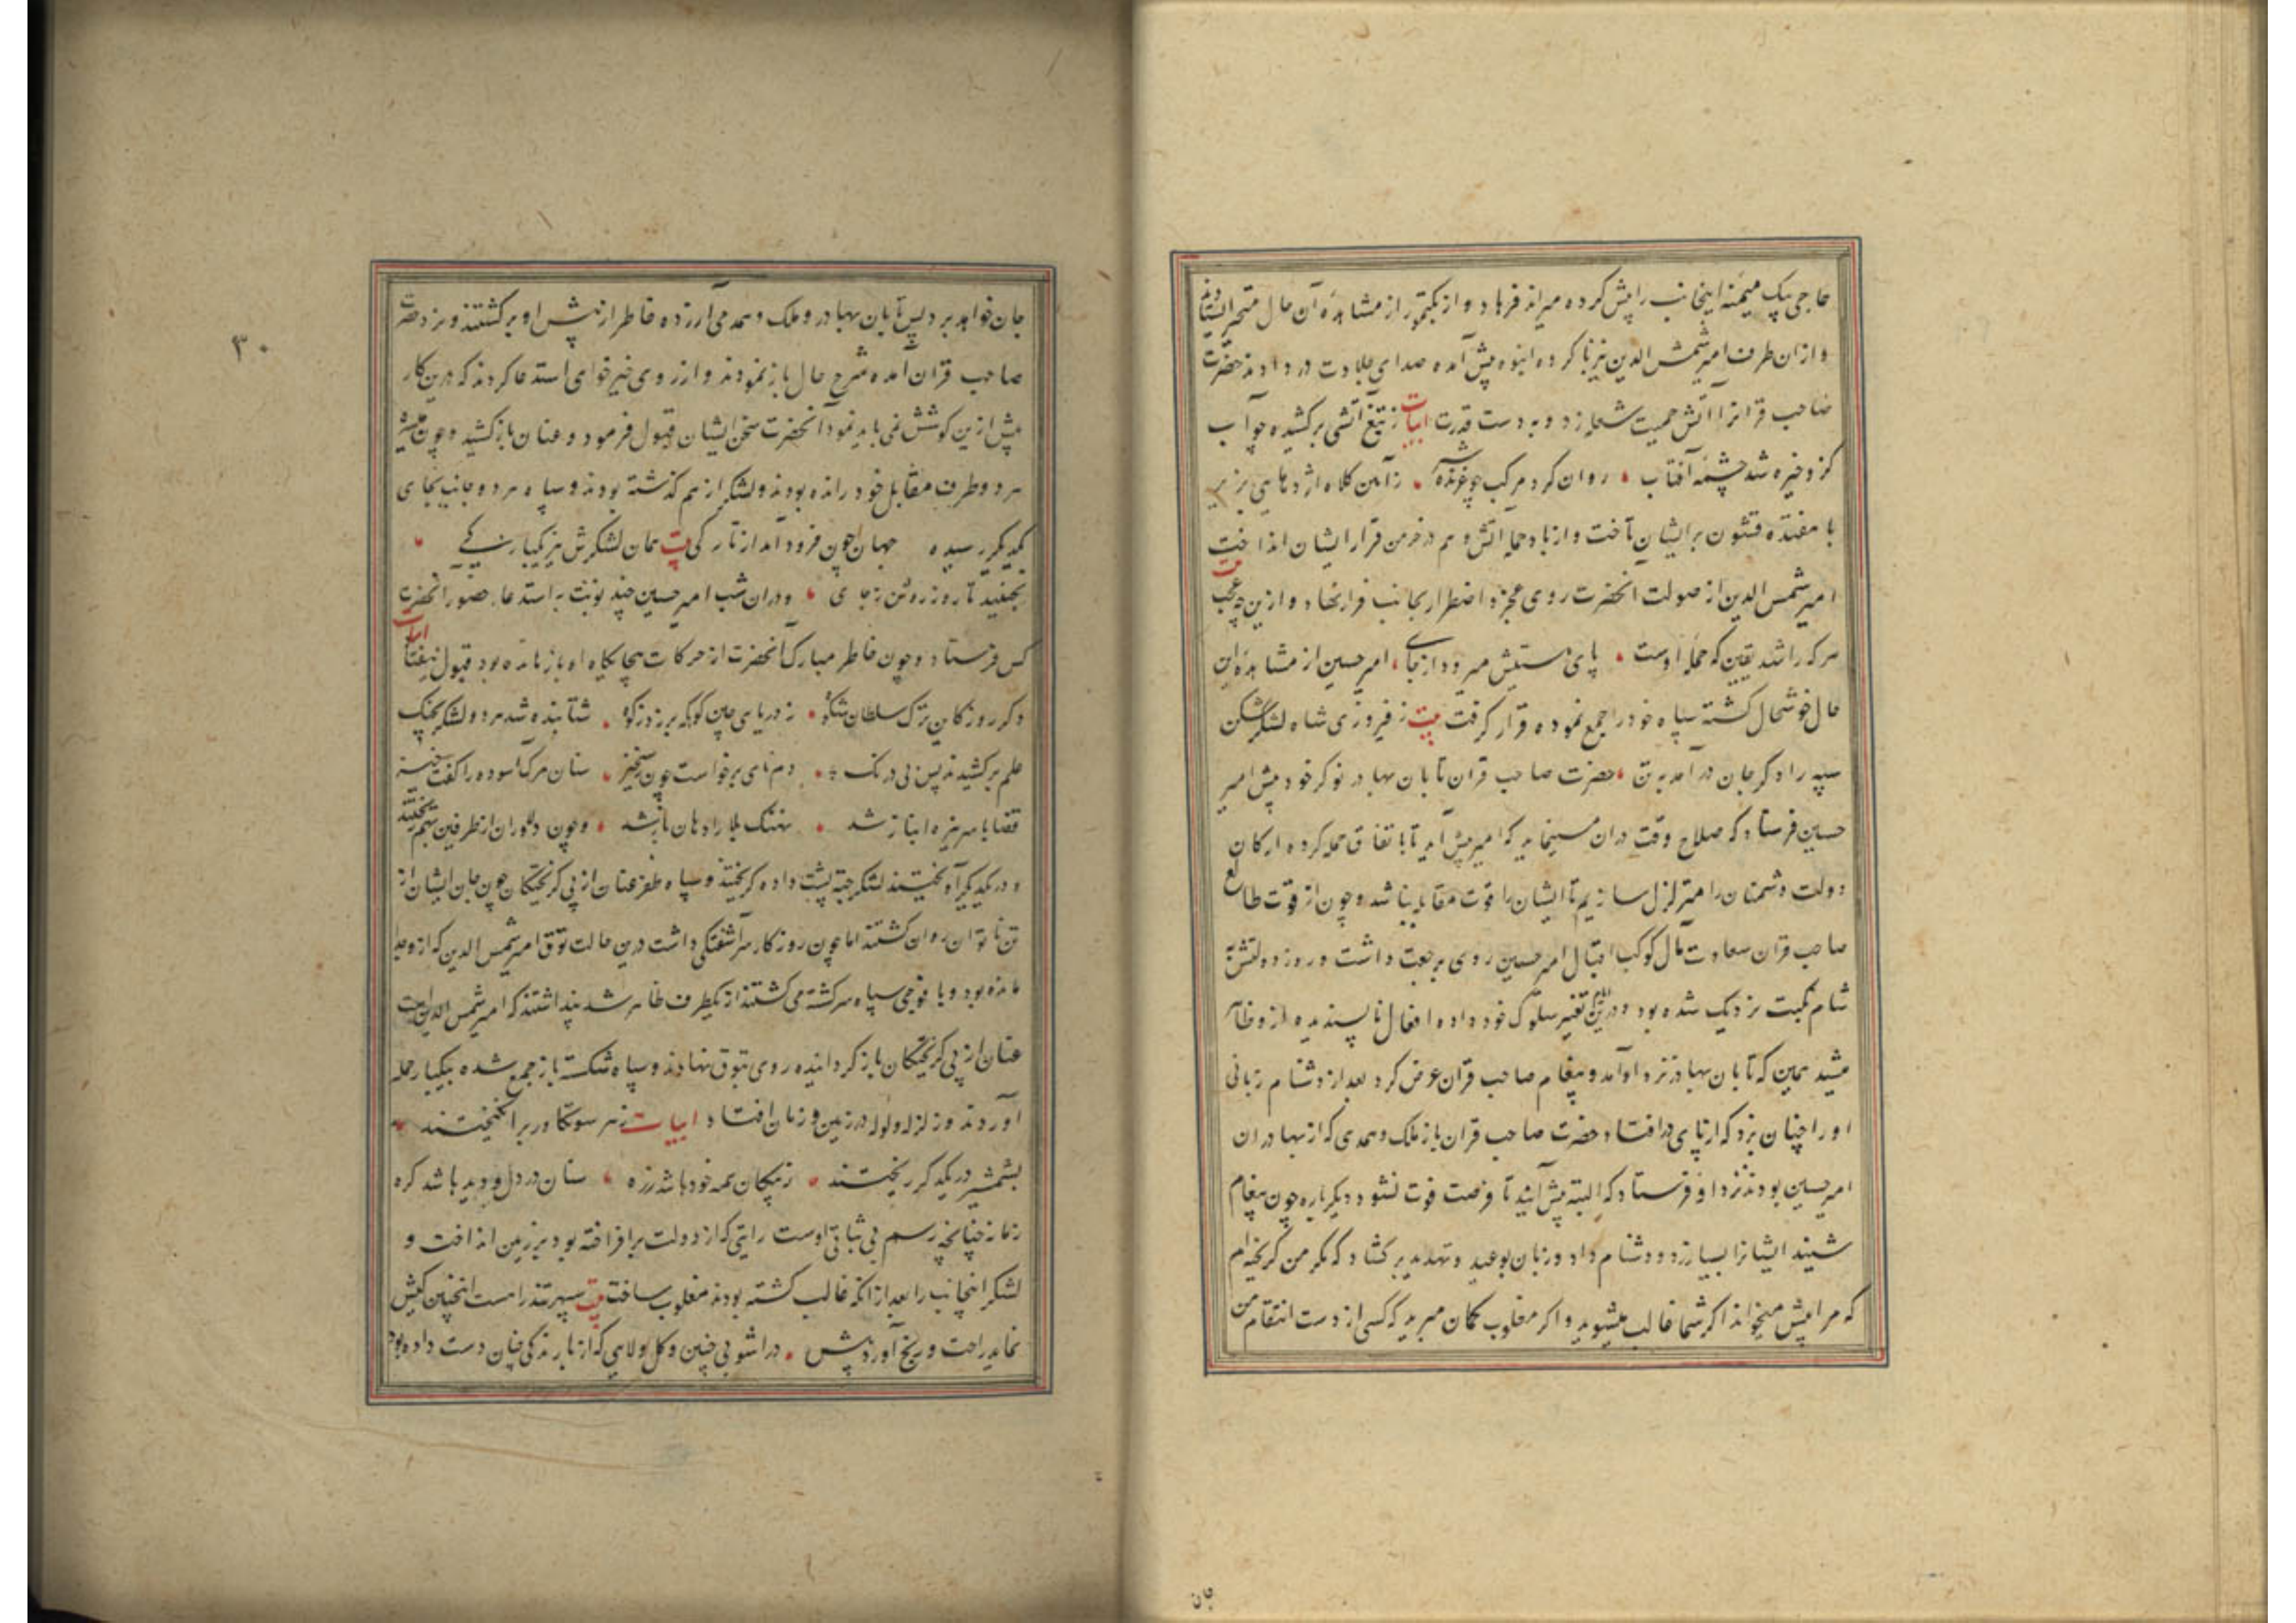 حاجی بیک میمنه اینجانب را پیش کرده میراند فرهاد و ازبکتمور از مشاهده آن حال متحیر ایستادند
و ازان طرف امیر شمس الدین نیز با کروه انبوه پیش آمده صدای جلادت در دادند حضرت
صاحب قرانرا آتش حمیت شعله زد و به دست قدرت ابیات ز تیغ آتشی برکشیده چو آب
کزو خیره شد چشمه آفتاب روان کرد مرکب چو غرنده ز آهن کلاه اژدهایی بزیر
با هفتده قشون بر ایشان تاخت و از باد حمله آتش وهم در خرمن قرار ایشان انداخت
امیر شمس الدین از صولت آنحضرت روی عجز و اضطرار بجانب فرار نهاد و ازین چه عجب بیت
هر که را شد یقین که حمله اوست پای هستیش میرود از جای امیر حسین از مشاهده این
حال خوشحال کشته سپاه خود را جمع نموده قرار کرفت بیت ز فیروزی شاه لشکرشکن
سپه را دکر جان در آمد به تن حضرت صاحب قران تابان بهادر نوکر خود پیش امیر
حسین فرستاد که صلاح وقت دران مینماید که امیر پیش آید تا باتفاق حمله کرده ارکان
دولت دشمنان را متزلزل سازیم تا ایشان را قوت مقابله نباشد و چون از قوت طالع
صاحب قران سعادت مآل کوکب اقبال امیر حسین روی برجعت داشت و روز دولتش به
شام نکبت نزدیک شده بود و درین تغییر سلوک خود داده افعال ناپسندیده ازو ظاهر
میشد همین که تابان بهادر نزد او آمد و پیغام صاحب قران عرض کرد بعد از دشنام زبانی
او را چنان بزد که از پای در افتاد حضرت صاحب قران باز ملک و همدمی که از بهادران
امیر حسین بودند نزد او فرستاد که البته پیش آیند تا فرصت فوت نشود دیکر باره چون پیغام
شنید ایشانرا بسیار زد و دشنام داد و زبان بوعید و تهدید بر کشاد که مکر من کریخته‌ام
که مرا پیش میخواند اکر شما غالب میشوید و اکر مغلوب کمان مبرید که کسی از دست انتقام من
جان
۳۰
جان خواهد برد پس تابان بهادر و ملک و همدمی آزرده خاطر از پیش او برکشتند و نزد حضرت
صاحب قران آمده شرح حال باز نمودند و از روی خیرخواهی استدعا کردند که درین کار
پیش ازین کوشش نمی باید نمود آنحضرت سخن ایشان قبول فرمود و عنان باز کشید و چون میسره
هر دو طرف مقابل خود رانده بودند و لشکر از هم کذشته بودند و سپاه هر دو جانب بجای
یکدیکر رسیده جهان چون فرود آمد از تارکی بیت همان لشکرش نیز یکبارکی
بخفتید تا روز روشن ز جای و دران شب امیر حسین چند نوبت به استدعاء حضور آنحضرت
کس فرستاد و چون خاطر مبارک آنحضرت از حرکات بیجایکاه او باز مانده بود قبول نیفتاد ابیات
دکر روز کان ترک سلطان شکوه ز دریای چین کوهه بر زد زکوه شتابنده شد هر دو لشکر بجنک
علم برکشیدند پس بی درنک دم نای برخواست چون رستخیز سنان مرک آسوده را کفت خیز
قضا با سر نیزه انباز شد نهنک بلا را دهان باز شد و چون دلاوران از طرفین بهم تاختند
و در یکدیکر آویختند لشکر جته پشت داده کریختند و سپاه ظفر عنان از پی کریختکان چون جان ایشان از
تن ناتوان روان کشتند اما چون روزکار سر آشفتکی داشت درین حالت توق امیر شمس الدین که ازو جدا
مانده بود و با فوجی سپاه سرکشته می کشتند از یکطرف ظاهر شد پنداشتند که امیر شمس الدین است
عنان از پی کریختکان باز کردانیده روی بتوق نهادند و سپاه شکسته باز جمع شده بیکبار حمله
آوردند و زلزله و لوله در زمین و زمان افتاد ابیات ز هر سو تکاور برانکیختند
بشمشیر در یکدکر ریختند ز پیکان همه خود باشد زره سنان در دل و دیده باشد کره
زمانه چنانچه رسم بی ثباتی اوست رایتی که از دولت برافراخته بود بر زمین انداخت و
لشکر اینجانب را بعد از آنکه غالب کشته بودند مغلوب ساخت بیت سپهر تند را هست اینچنین کیش
نماید راحت و رنج آورد پیش در آشوبی چنین و کل و لایی که از بارندکی چنان دست داده بود